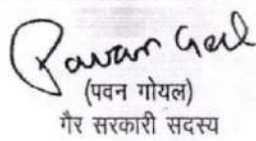 Pavan Goel
(पवन गोयल)
गैर सरकारी सदस्य